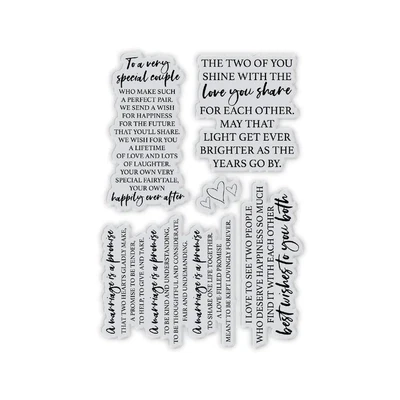 To a very
special couple
WHO MAKE SUCH
A PERFECT PAIR.
WE SEND A WISH
FOR HAPPINESS
FOR THE FUTURE
THAT YOU'LL SHARE.
WE WISH FOR YOU
A LIFETIME
OF LOVE AND LOTS
OF LAUGHTER.
YOUR OWN VERY
SPECIAL FAIRYTALE,
YOUR OWN
happily ever after
THE TWO OF YOU
SHINE WITH THE
love you share
FOR EACH OTHER.
MAY THAT
LIGHT GET EVER
BRIGHTER AS THE
YEARS GO BY.
A marriage is a promise
THAT TWO HEARTS GLADLY MAKE,
A PROMISE TO BE TENDER,
TO HELP, TO GIVE AND TAKE.
A marriage is a promise
TO BE KIND AND UNDERSTANDING,
TO BE THOUGHTFUL AND CONSIDERATE,
FAIR AND UNDEMANDING.
A marriage is a promise
TO SHARE ONE LIFE TOGETHER.
A LOVE FILLED PROMISE
MEANT TO BE KEPT LOVINGLY FOREVER.
I LOVE TO SEE TWO PEOPLE
WHO DESERVE HAPPINESS SO MUCH
FIND IT WITH EACH OTHER.
best wishes to you both